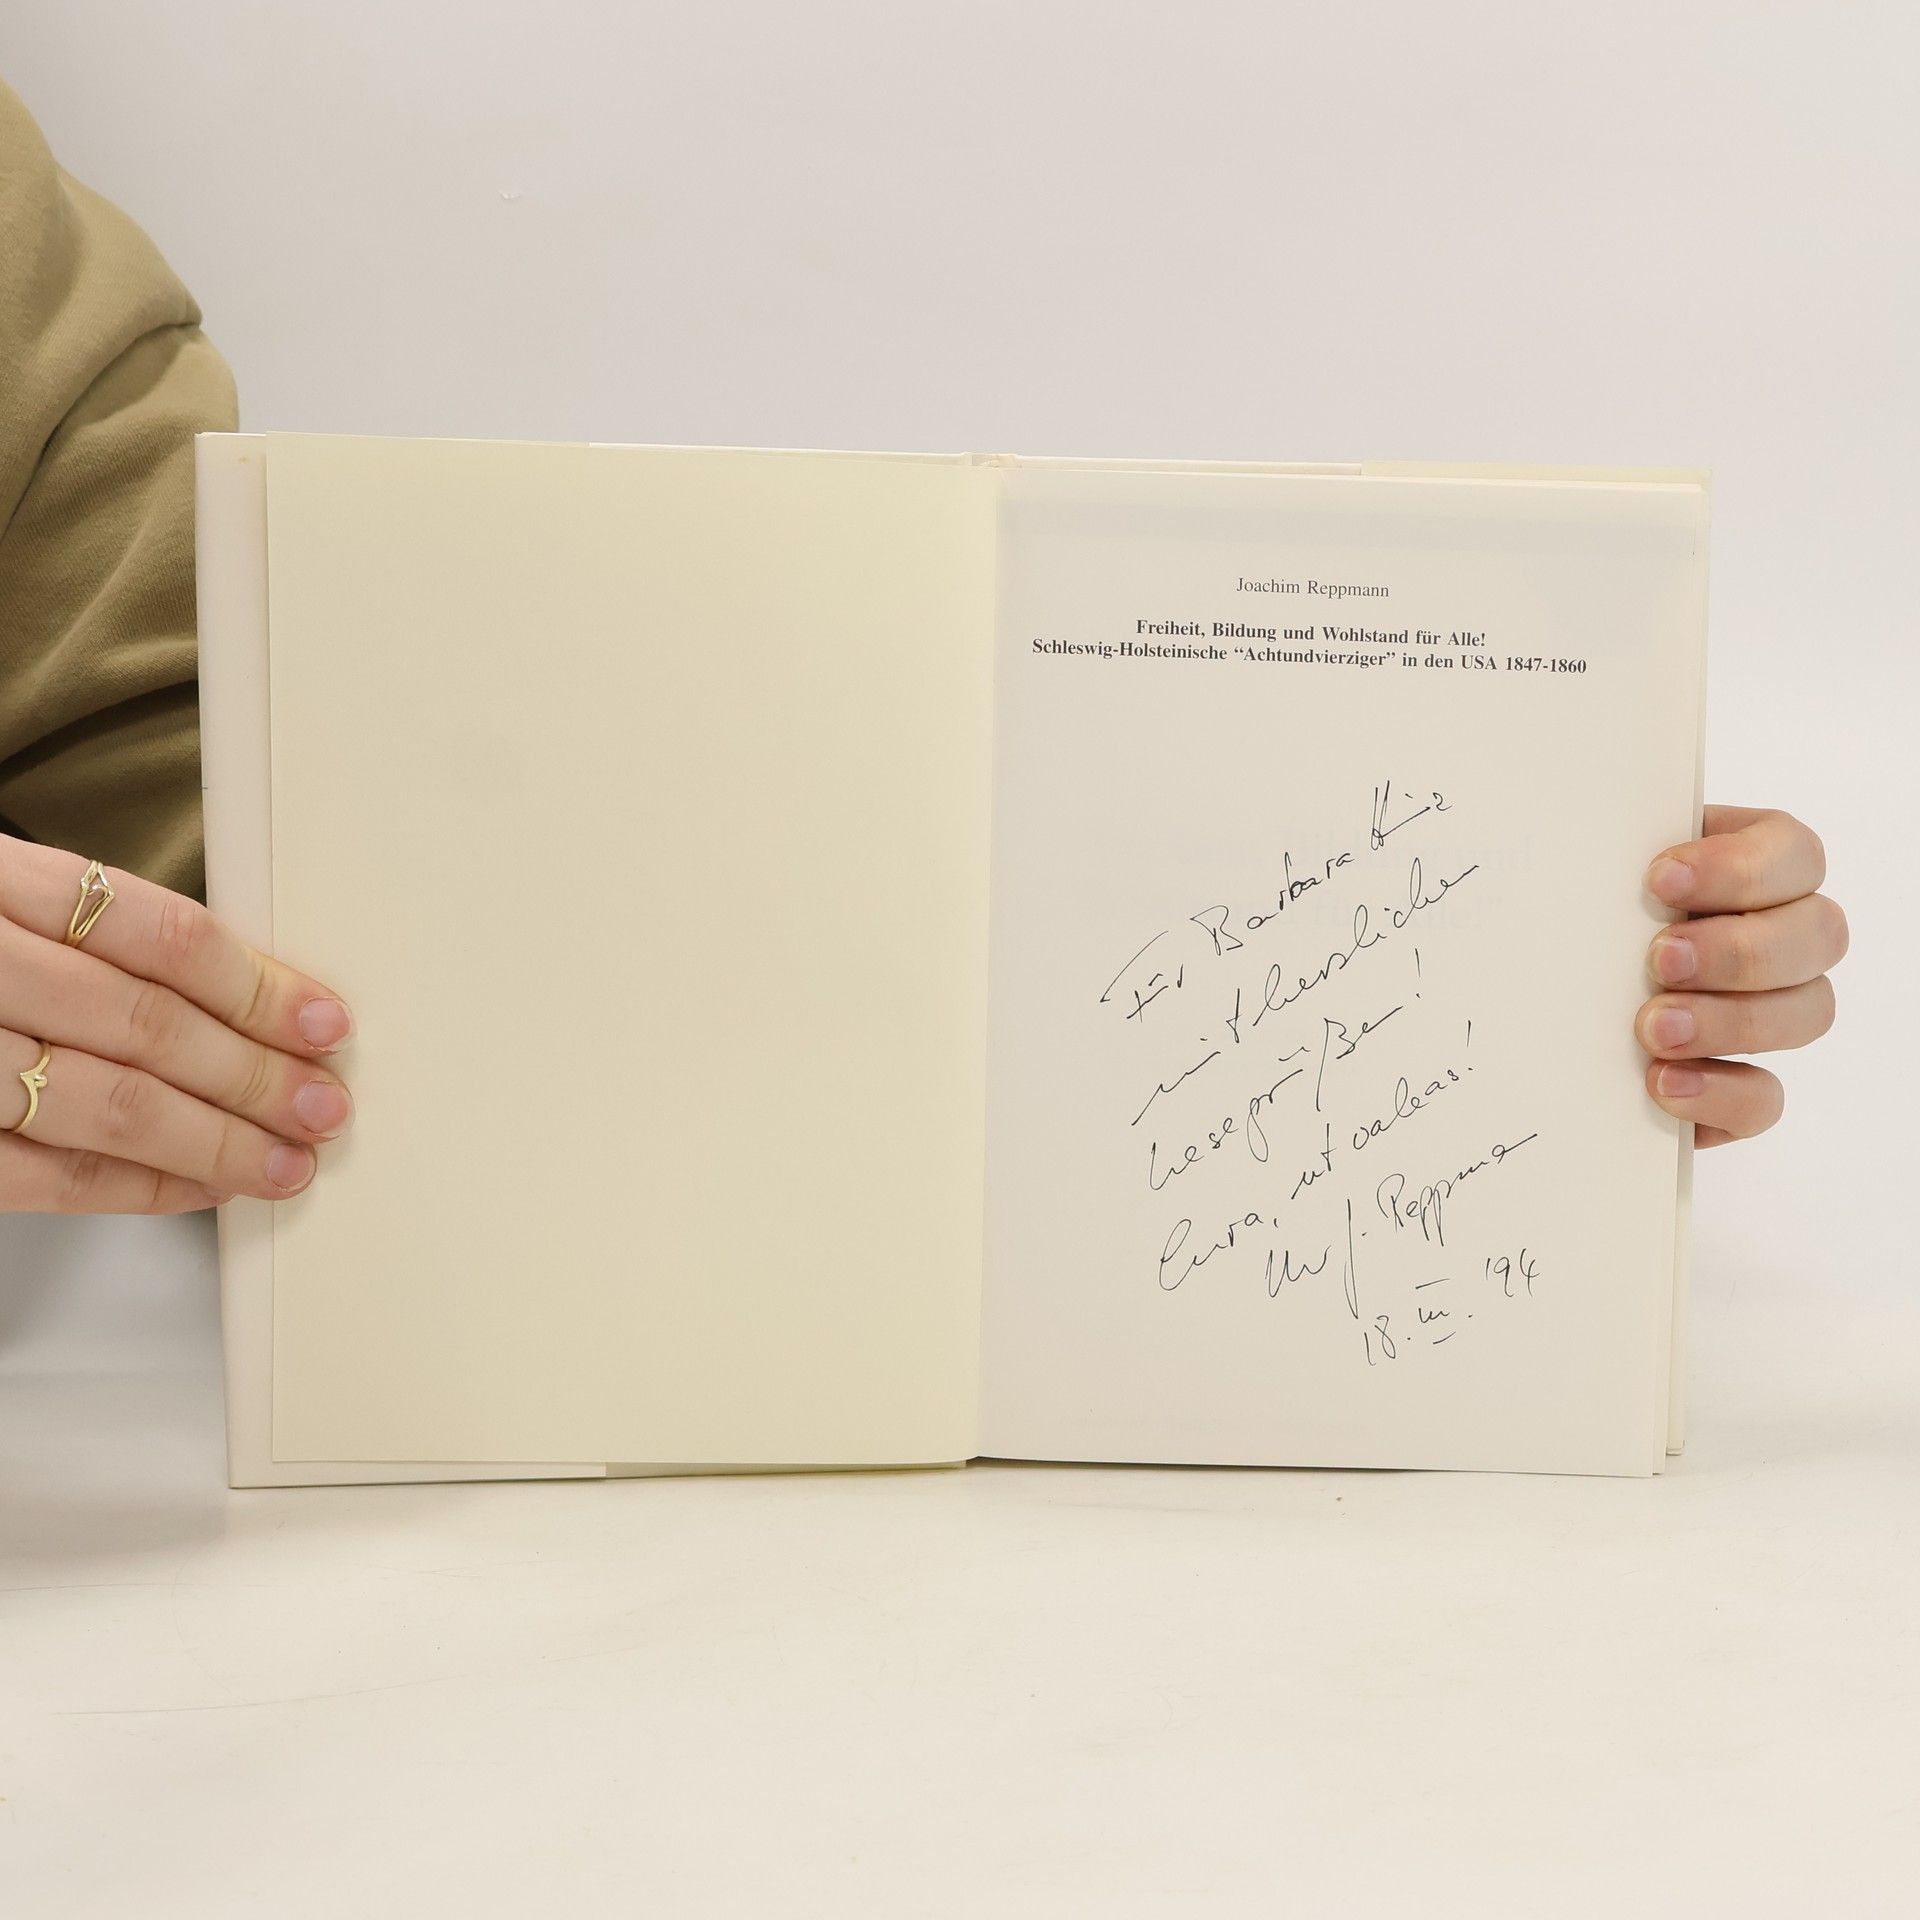 Joachim Reppmann
Freiheit, Bildung und Wohlstand für Alle!
Schleswig-Holsteinische “Achtundvierziger” in den USA 1847-1860
Für Barbara
mit herzlichen
Lesegrüßen!
Cura, ut valeas!
Ihr J. Reppmann
18. III. '94